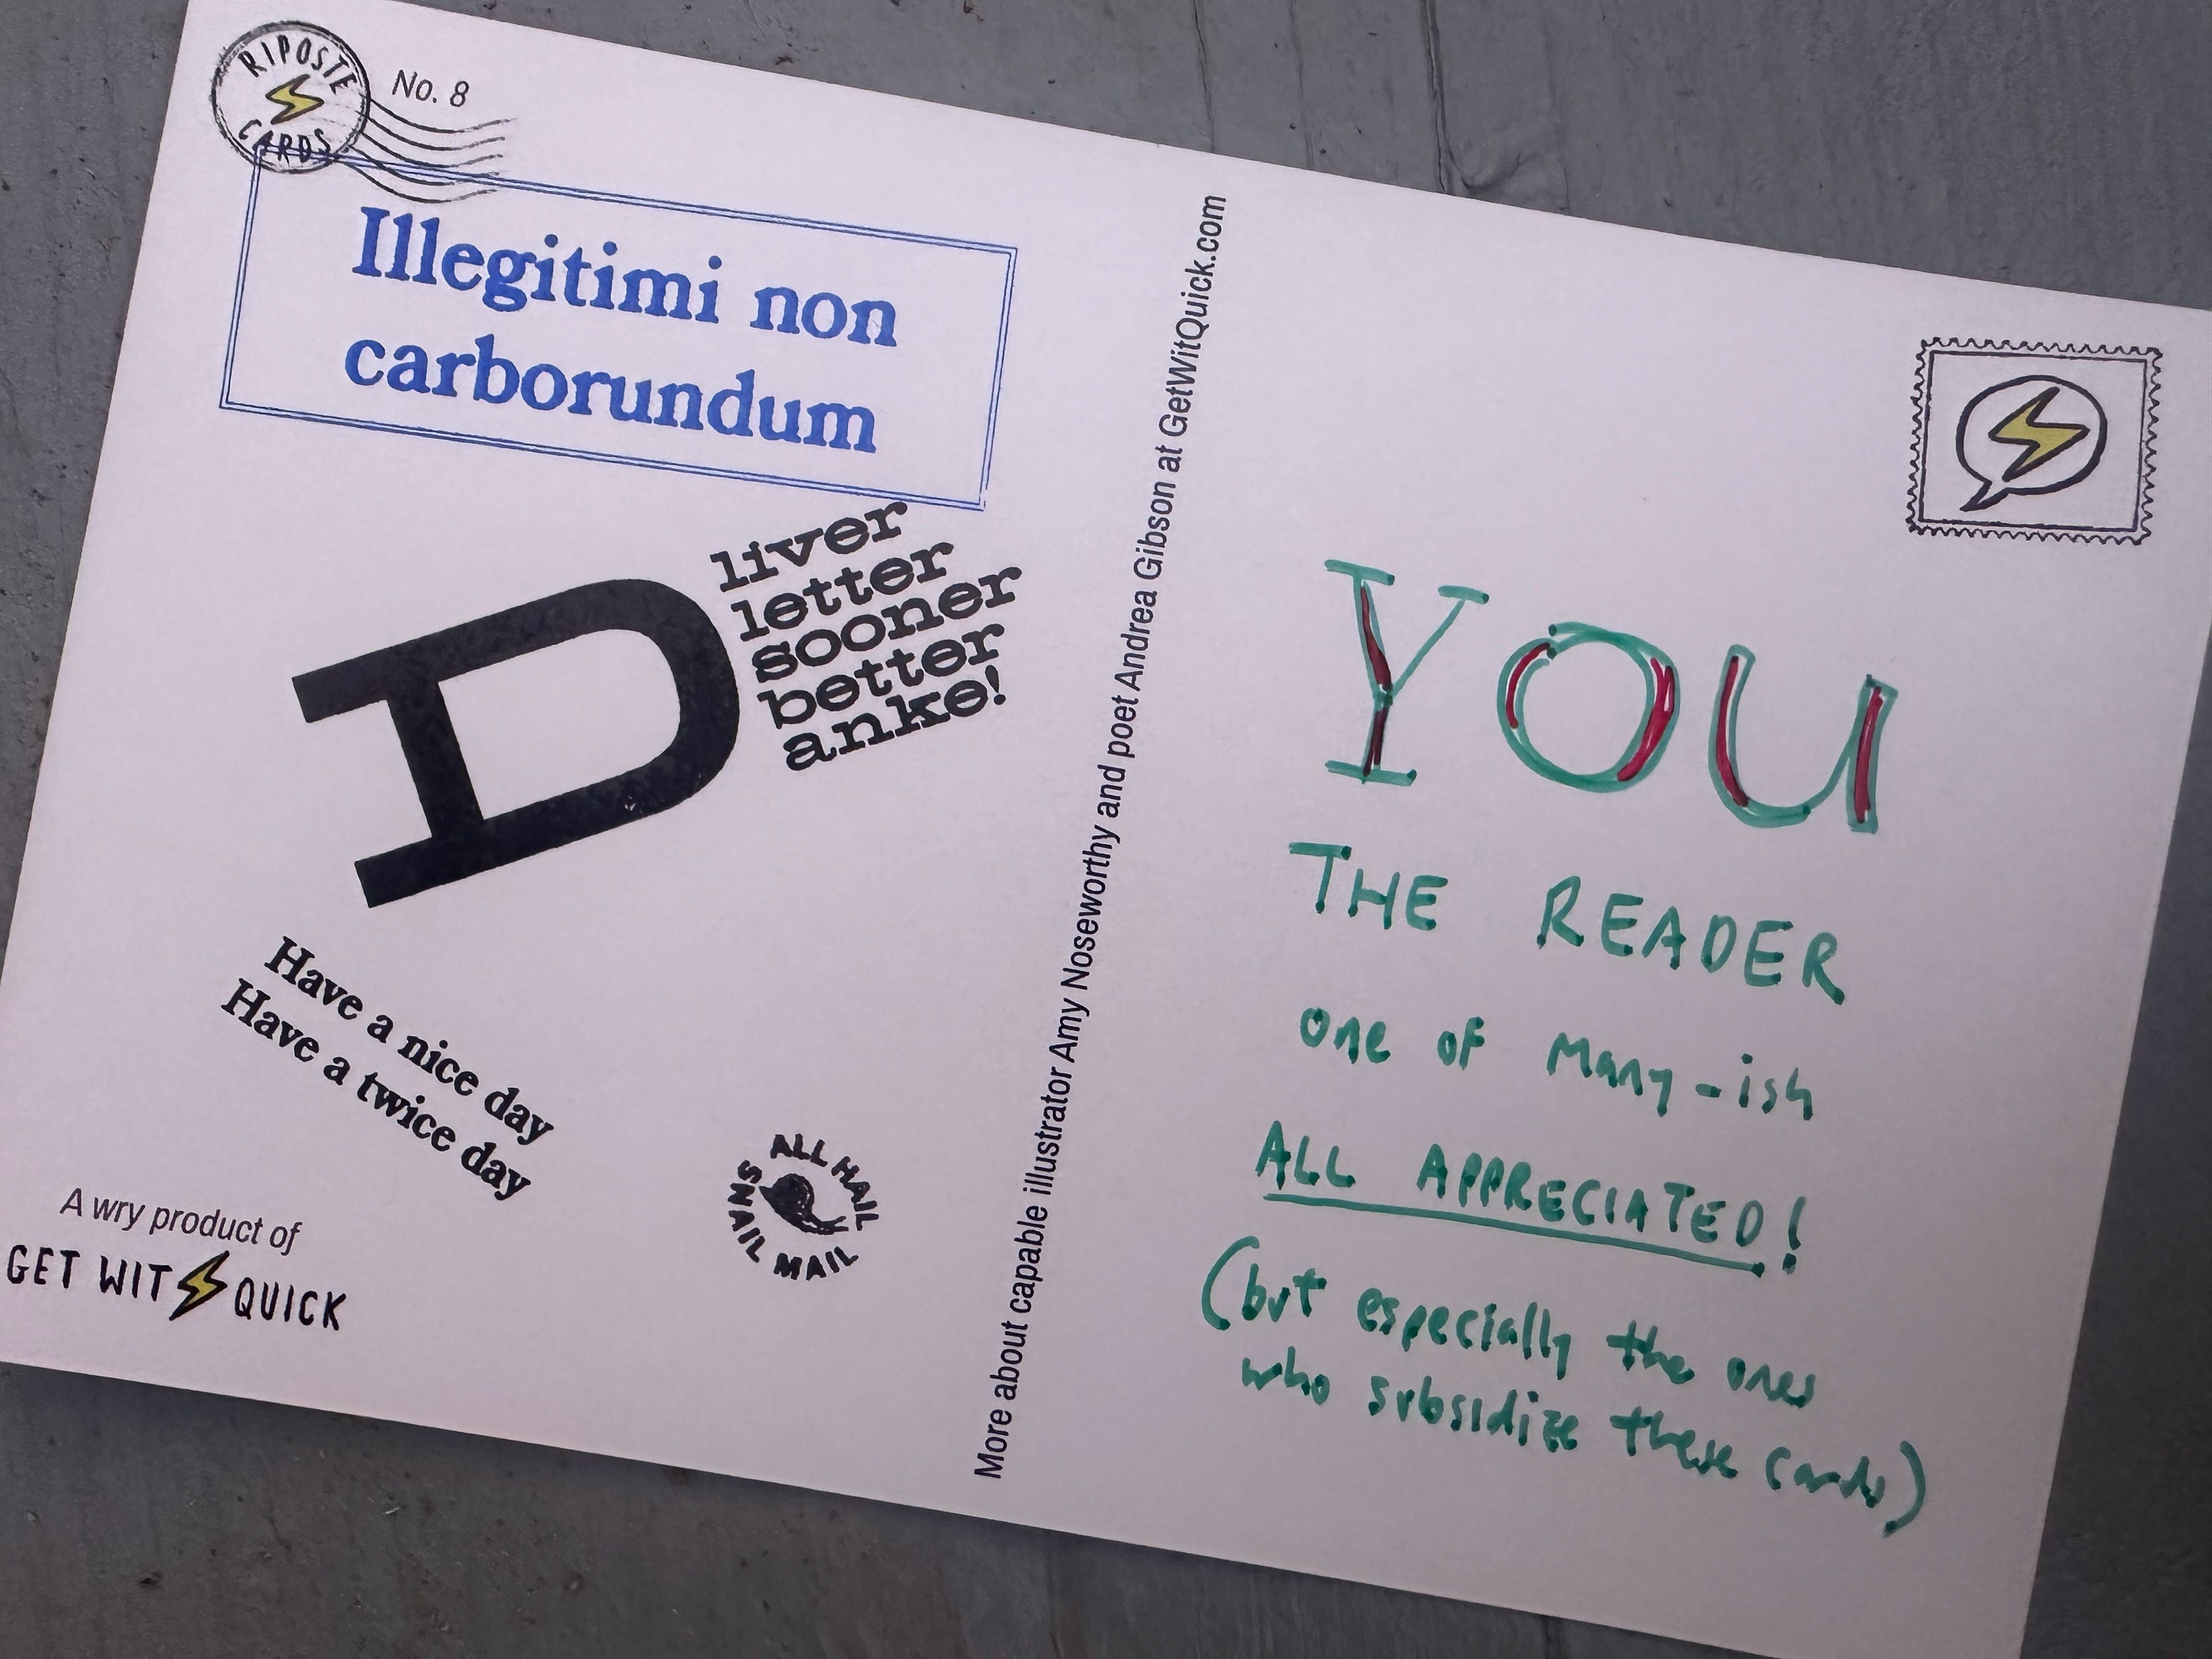 RIPOSTE
CARDS
No. 8
Illegitimi non
carborundum
D
liver
letter
sooner
better
anke!
Have a nice day
Have a twice day
A wry product of
GET WIT QUICK
ALL HAIL
SNAIL MAIL
More about capable illustrator Amy Noseworthy and poet Andrea Gibson at GetWitQuick.com
YOU
THE READER
one of many-ish
ALL APPRECIATED!
(but especially the ones
who subsidize these cards)